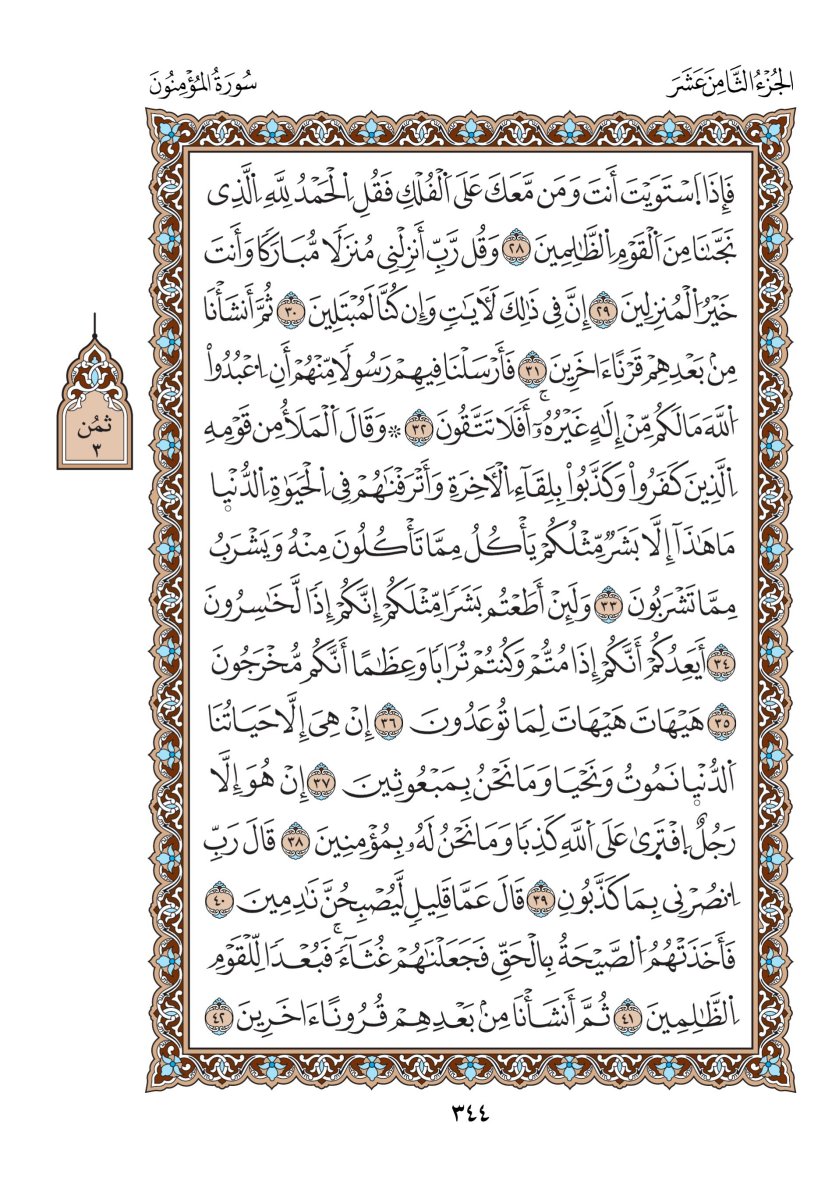 الجُزْءُ الثَّامِنَ عَشَرَ
سُورَةُ المُؤْمِنُونَ
فَإِذَا اَسْتَوَيْتَ أَنتَ وَمَن مَّعَكَ عَلَى اَلْفُلْكِ فَقُلِ اِلْحَمْدُ لِلهِ اِلَّذِى
نَجَّىٰنَا مِنَ اَلْقَوْمِ اِلظَّٰلِمِينَ ٢٨ وَقُل رَّبِّ أَنزِلْنِى مُنزَلًا مُّبَارَكًا وَأَنتَ
خَيْرُ اُلْمُنزِلِينَ ٢٩ إِنَّ فِى ذَٰلِكَ لَأَيَٰتٍ وَإِن كُنَّا لَمُبْتَلِينَ ٣٠ ثُمَّ أَنشَأْنَا
مِنۢ بَعْدِهِمْ قَرْنًا ءَاخَرِينَ ٣١ فَأَرْسَلْنَا فِيهِمْ رَسُولًا مِّنْهُمْ أَنِ اِعْبُدُواْ
اُللَّهَ مَا لَكُم مِّنْ إِلَٰهٍ غَيْرُهُۥٓ أَفَلَا تَتَّقُونَ ٣٢ ۞ وَقَالَ اَلْمَلَأُ مِن قَوْمِهِ
اِلَّذِينَ كَفَرُواْ وَكَذَّبُواْ بِلِقَآءِ اِلْأَخِرَةِ وَأَتْرَفْنَٰهُمْ فِى اِلْحَيَوٰةِ اِلدُّنْيَا
مَا هَٰذَآ إِلَّا بَشَرٌ مِّثْلُكُمْ يَأْكُلُ مِمَّا تَأْكُلُونَ مِنْهُ وَيَشْرَبُ
مِمَّا تَشْرَبُونَ ٣٣ وَلَئِنْ أَطَعْتُم بَشَرًا مِّثْلَكُمْ إِنَّكُمْ إِذًا لَّخَٰسِرُونَ
٣٤ أَيَعِدُكُمْ أَنَّكُمْ إِذَا مُتُّمْ وَكُنتُمْ تُرَابًا وَعِظَٰمًا أَنَّكُم مُّخْرَجُونَ
٣٥ هَيْهَاتَ هَيْهَاتَ لِمَا تُوعَدُونَ ٣٦ إِنْ هِىَ إِلَّا حَيَاتُنَا
اَلدُّنْيَا نَمُوتُ وَنَحْيَا وَمَا نَحْنُ بِمَبْعُوثِينَ ٣٧ إِنْ هُوَ إِلَّا
رَجُلٌ اِفْتَرَىٰ عَلَى اَللَّهِ كَذِبًا وَمَا نَحْنُ لَهُۥ بِمُؤْمِنِينَ ٣٨ قَالَ رَبِّ
اِنصُرْنِى بِمَا كَذَّبُونِ ٣٩ قَالَ عَمَّا قَلِيلٍ لَّيُصْبِحُنَّ نَٰدِمِينَ ٤٠
فَأَخَذَتْهُمُ اُلصَّيْحَةُ بِالْحَقِّ فَجَعَلْنَٰهُمْ غُثَآءً فَبُعْدًا لِّلْقَوْمِ
اِلظَّٰلِمِينَ ٤١ ثُمَّ أَنشَأْنَا مِنۢ بَعْدِهِمْ قُرُونًا ءَاخَرِينَ ٤٢
ثُمُن
٣
٣٤٤